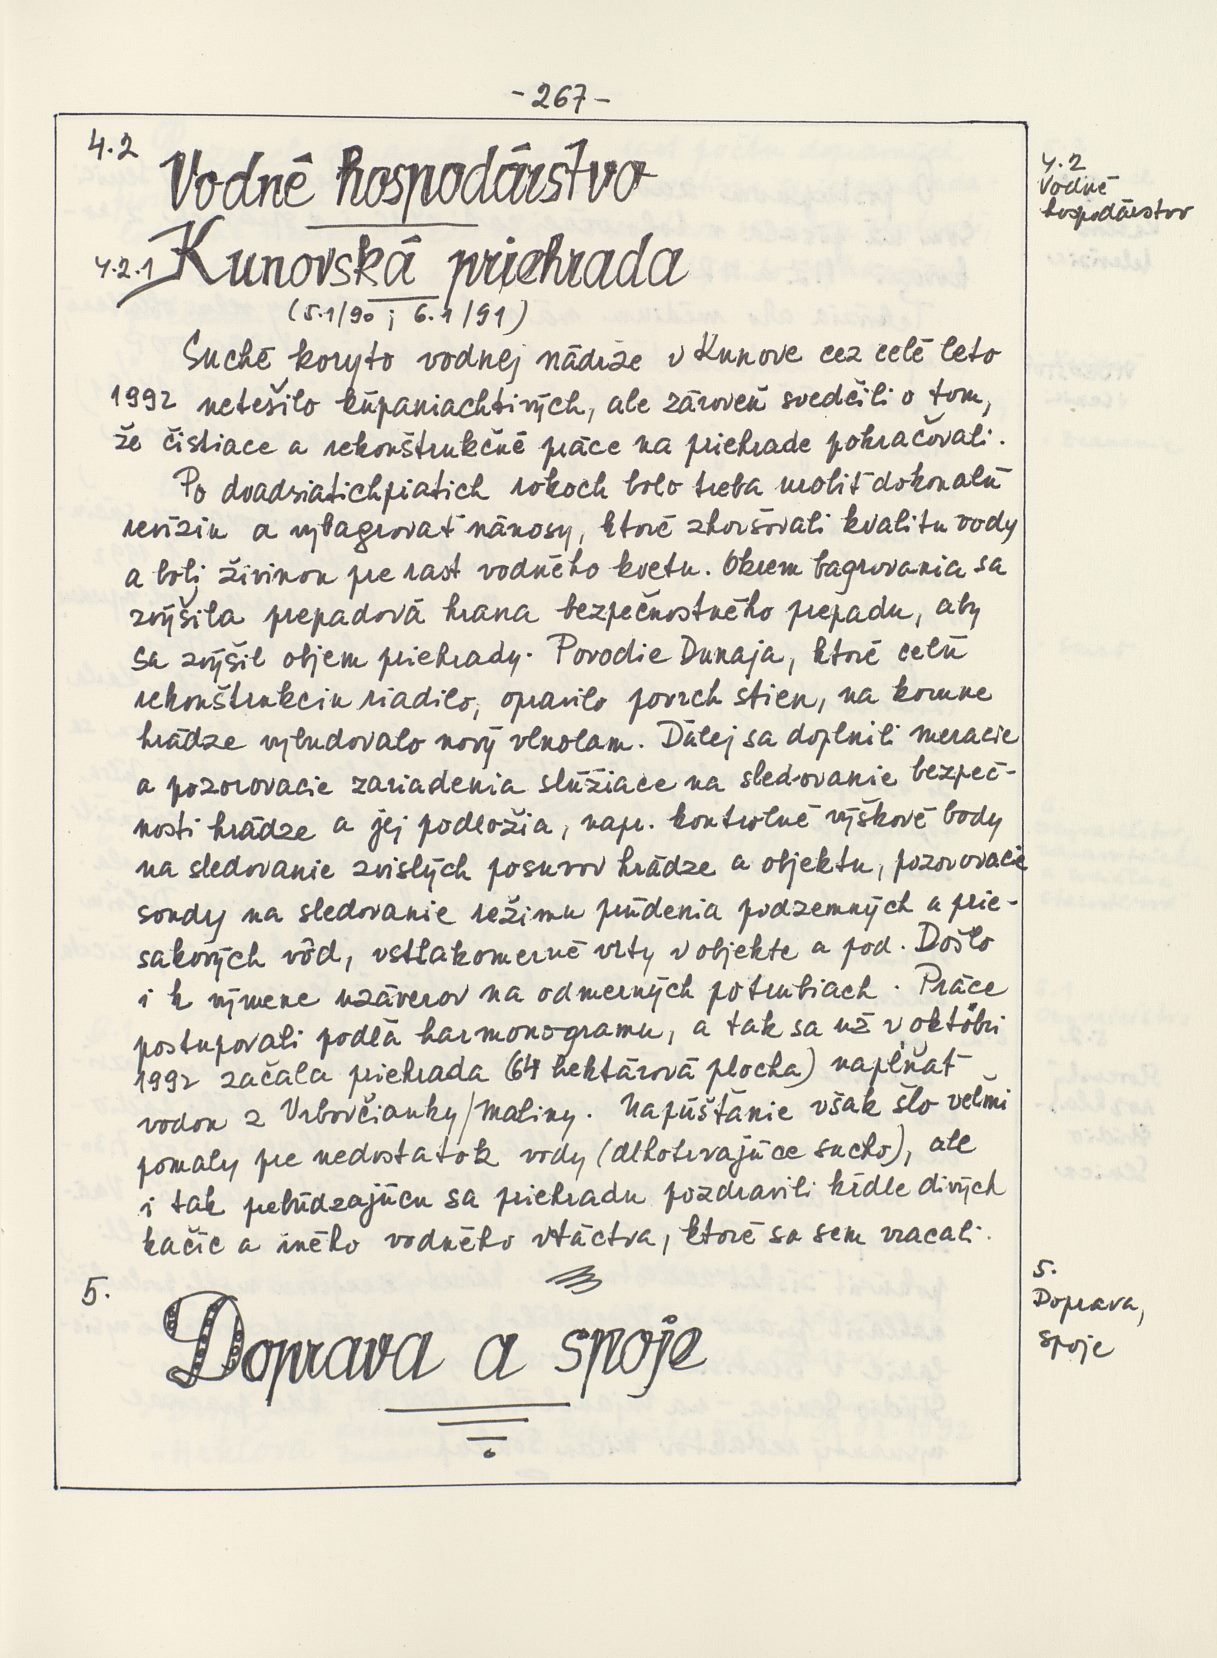 - 267 -
4.2
Vodné hospodárstvo
4.2.1 Kunovská priehrada
(5.1/90 ; 6.1/91)
4.2
Vodné
hospodárstvo
Suché koryto vodnej nádrže v Kunove cez celé leto
1992 netešilo kúpaniachtivých, ale zároveň svedčili o tom,
že čistiace a rekonštrukčné práce na priehrade pokračovali.
Po dvadsiatichpiatich rokoch bolo treba urobiť dokonalú
revíziu a vybagrovať nánosy, ktoré zhoršovali kvalitu vody
a boli živinou pre rast vodného kvetu. Okrem bagrovania sa
zvýšila prepadová hrana bezpečnostného prepadu, aby
sa zvýšil objem priehrady. Povodie Dunaja, ktoré celú
rekonštrukciu riadilo, opravilo povrch stien, na korune
hrádze vybudovalo nový vlnolam. Ďalej sa doplnili meracie
a pozorovacie zariadenia slúžiace na sledovanie bezpeč-
nosti hrádze a jej podložia, napr. kontrolné výškové body
na sledovanie zvislých posunov hrádze a objektu, pozorovacie
sondy na sledovanie režimu prúdenia podzemných a prie-
sakových vôd, vztlakomerné vrty v objekte a pod. Došlo
i k výmene uzáverov na odmerných potrubiach. Práce
postupovali podľa harmonogramu, a tak sa už v októbri
1992 začala priehrada (64 hektárová plocha) napĺňať
vodou z Vrbovčianky/Maliny. Napúšťanie však šlo veľmi
pomaly pre nedostatok vody (dlhotrvajúce sucho), ale
i tak prebúdzajúcu sa priehradu pozdravili kŕdle divých
kačíc a iného vodného vtáctva, ktoré sa sem vracali.
5.
Doprava a spoje
5.
Doprava,
spoje